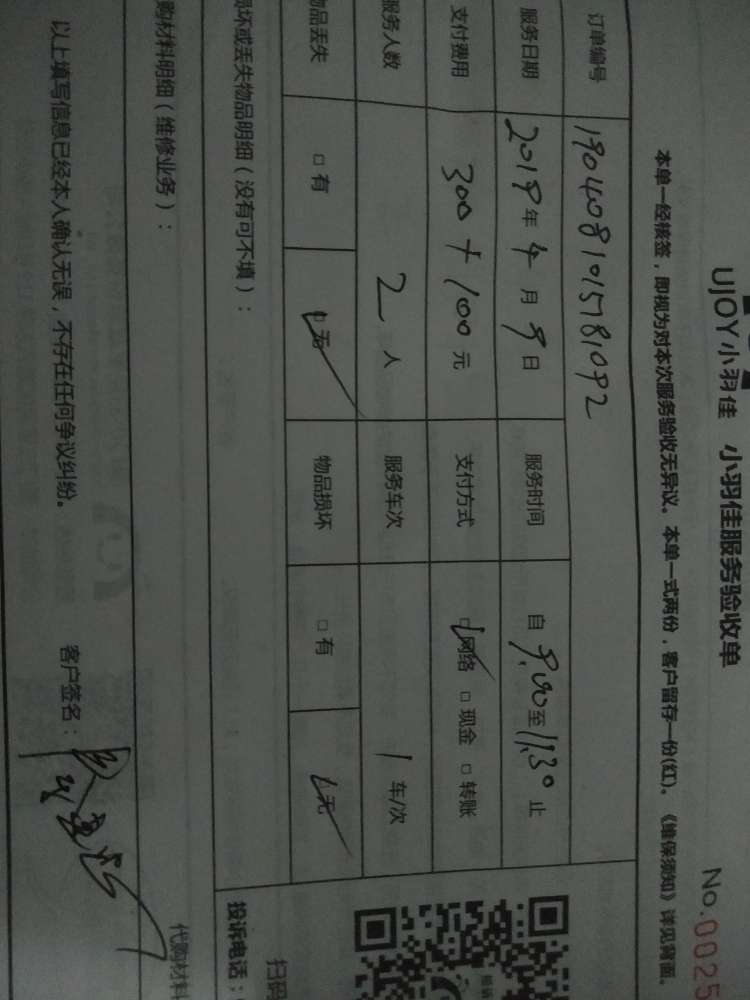 UJOY小羽佳 小羽佳服务验收单
No.0025
本单一经核签，即视为对本次服务验收无异议。本单一式两份，客户留存一份(红)。《维保须知》详见背面。
订单编号 1904081015781092
服务日期 2019年4月9日 服务时间 自9:00至11:30止
支付费用 300+100元 支付方式 □网络 □现金 □转账
服务人数 2人 服务车次 1车/次
物品丢失 □有 □无 物品损坏 □有 □无
损坏或丢失物品明细（没有可不填）：
投诉电话：
扫码
购材料明细（维修业务）：
代购材料
以上填写信息已经本人确认无误，不存在任何争议纠纷。 客户签名：